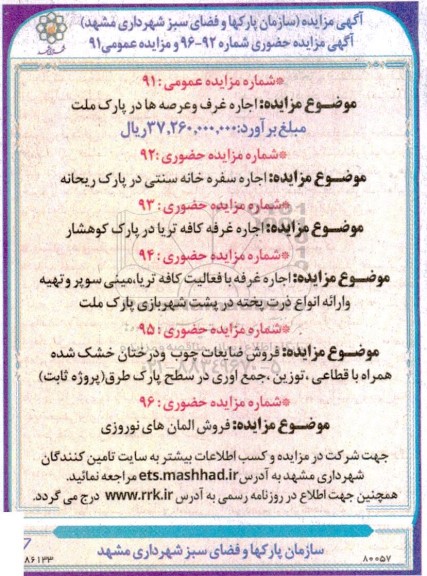 آگهی مزایده (سازمان پارکها و فضای سبز شهرداری مشهد)
آگهی مزایده حضوری شماره ۹۲-۹۶ و مزایده عمومی ۹۱
*شماره مزایده عمومی: ۹۱
موضوع مزایده: اجاره غرف و عرصه ها در پارک ملت
مبلغ برآورد: ۳۷,۲۶۰,۰۰۰,۰۰۰ ریال
*شماره مزایده حضوری: ۹۲
موضوع مزایده: اجاره سفره خانه سنتی در پارک ریحانه
*شماره مزایده حضوری: ۹۳
موضوع مزایده: اجاره غرفه کافه تریا در پارک کوهشار
*شماره مزایده حضوری: ۹۴
موضوع مزایده: اجاره غرفه با فعالیت کافه تریا،مینی سوپر و تهیه
وارائه انواع ذرت پخته در پشت شهربازی پارک ملت
*شماره مزایده حضوری: ۹۵
موضوع مزایده: فروش ضایعات چوب ودرختان خشک شده
همراه با قطاعی ،توزین ،جمع آوری در سطح پارک طرق(پروژه ثابت)
*شماره مزایده حضوری: ۹۶
موضوع مزایده: فروش المان های نوروزی
جهت شرکت در مزایده و کسب اطلاعات بیشتر به سایت تامین کنندگان
شهرداری مشهد به آدرس ets.mashhad.ir مراجعه نمائید.
همچنین جهت اطلاع در روزنامه رسمی به آدرس www.rrk.ir درج می گردد.
سازمان پارکها و فضای سبز شهرداری مشهد
۸۰۰۵۷
۸۶۱۳۳